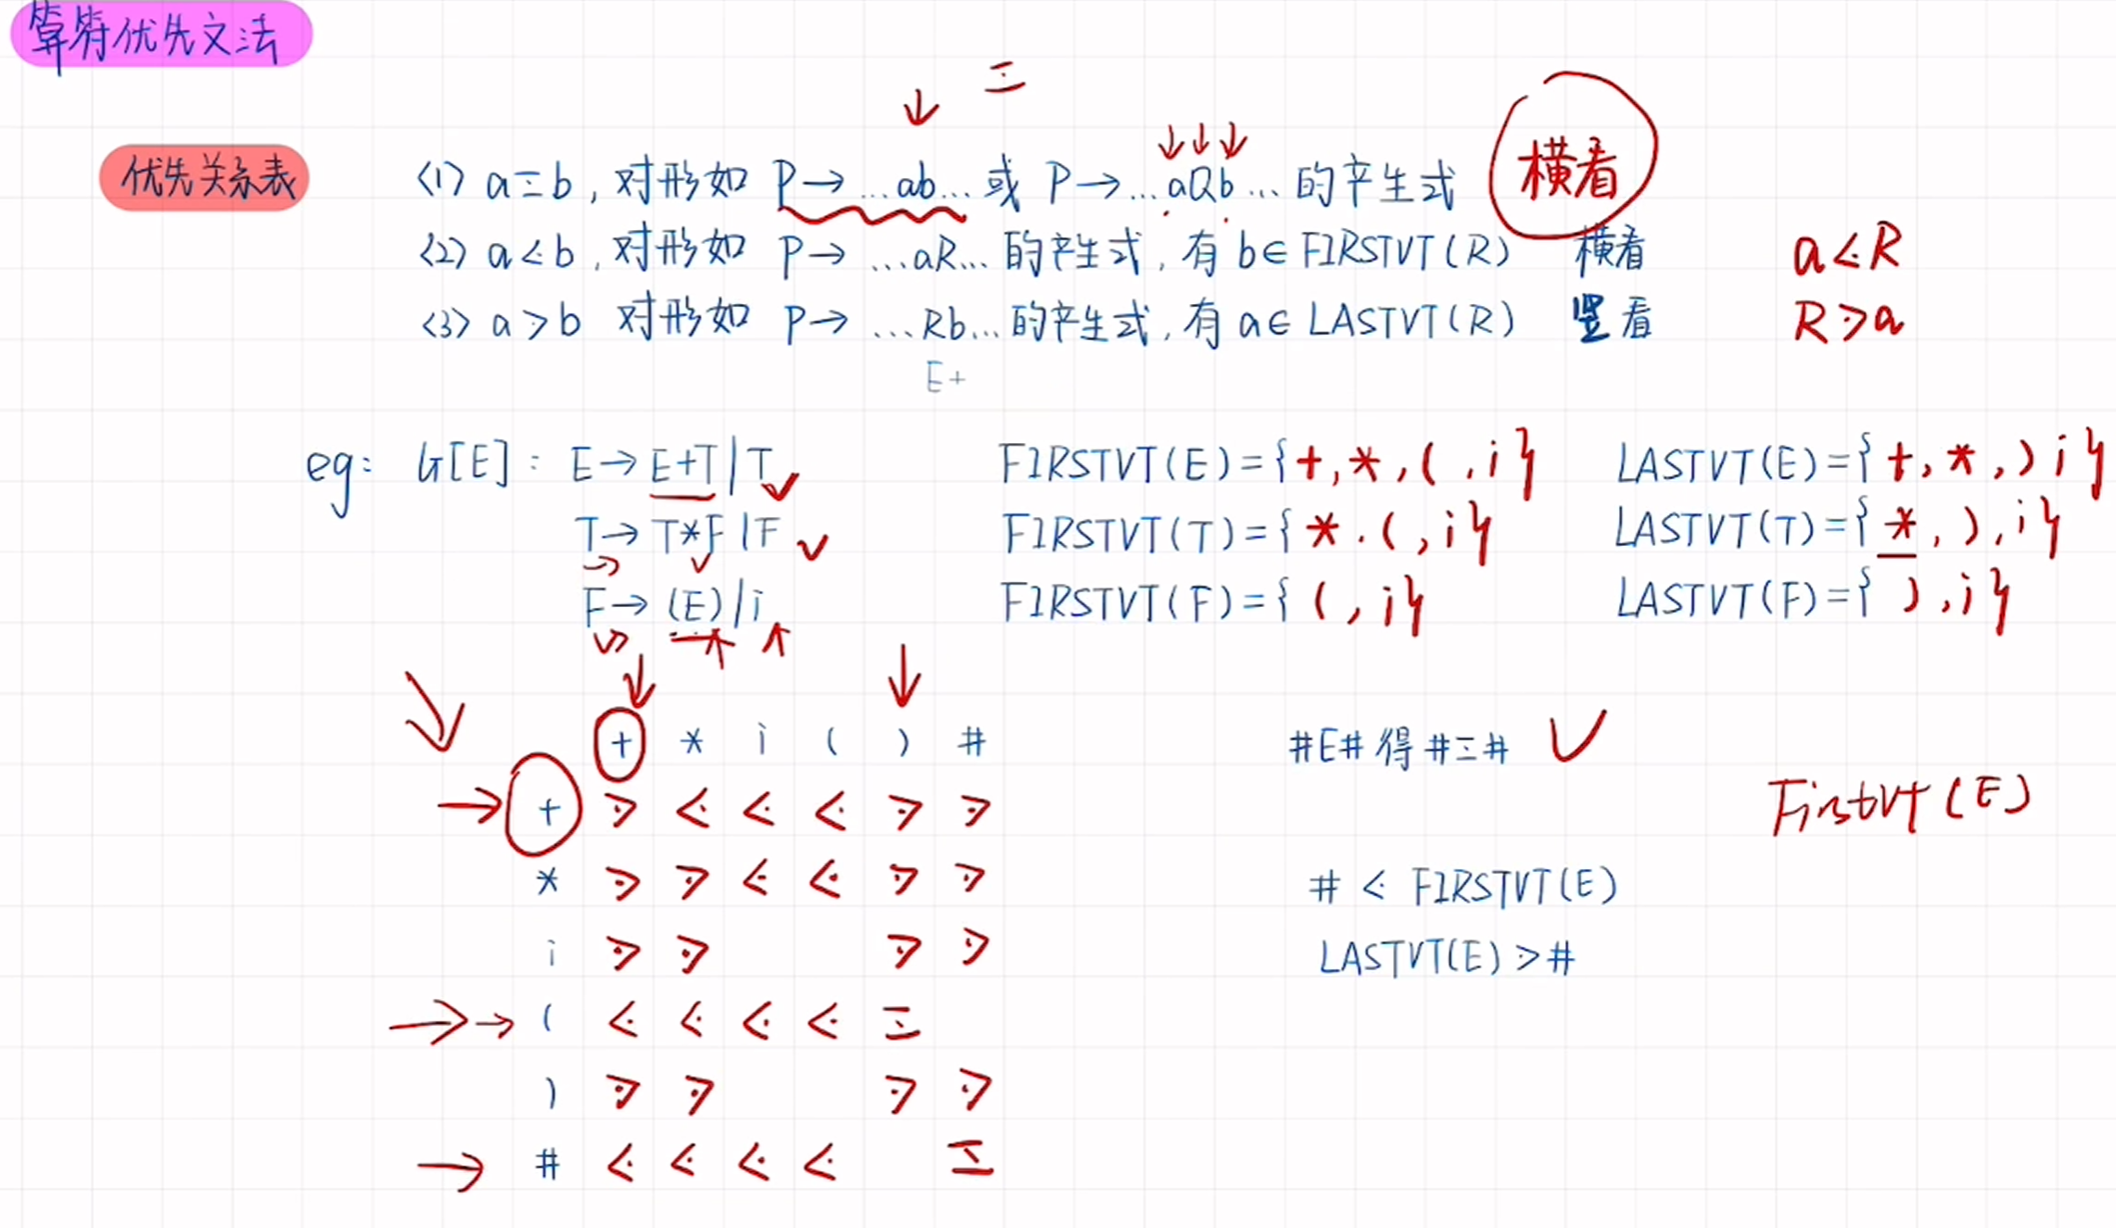 算符优先文法
优先关系表
≐
<1> a≐b, 对形如 P→…ab…或 P→…aQb…的产生式 横看
<2> a⋖b, 对形如 P→…aR…的产生式, 有 b∈FIRSTVT(R) 横看 a⋖R
<3> a⋗b 对形如 P→…Rb…的产生式, 有 a∈LASTVT(R) 竖看 R⋗a
E+
eg: G[E]: E→E+T|T FIRSTVT(E)={+,*,(,i} LASTVT(E)={+,*,) i}
T→T*F|F FIRSTVT(T)={*.(,i} LASTVT(T)={*,),i}
F→(E)|i FIRSTVT(F)={(,i} LASTVT(F)={),i}
+ * i ( ) # #E#得#≐#
+ ⋗ ⋖ ⋖ ⋖ ⋗ ⋗ Firstvt(E)
* ⋗ ⋗ ⋖ ⋖ ⋗ ⋗ # ⋖ FIRSTVT(E)
i ⋗ ⋗ ⋗ ⋗ LASTVT(E)⋗#
( ⋖ ⋖ ⋖ ⋖ ≐
) ⋗ ⋗ ⋗ ⋗
# ⋖ ⋖ ⋖ ⋖ ≐